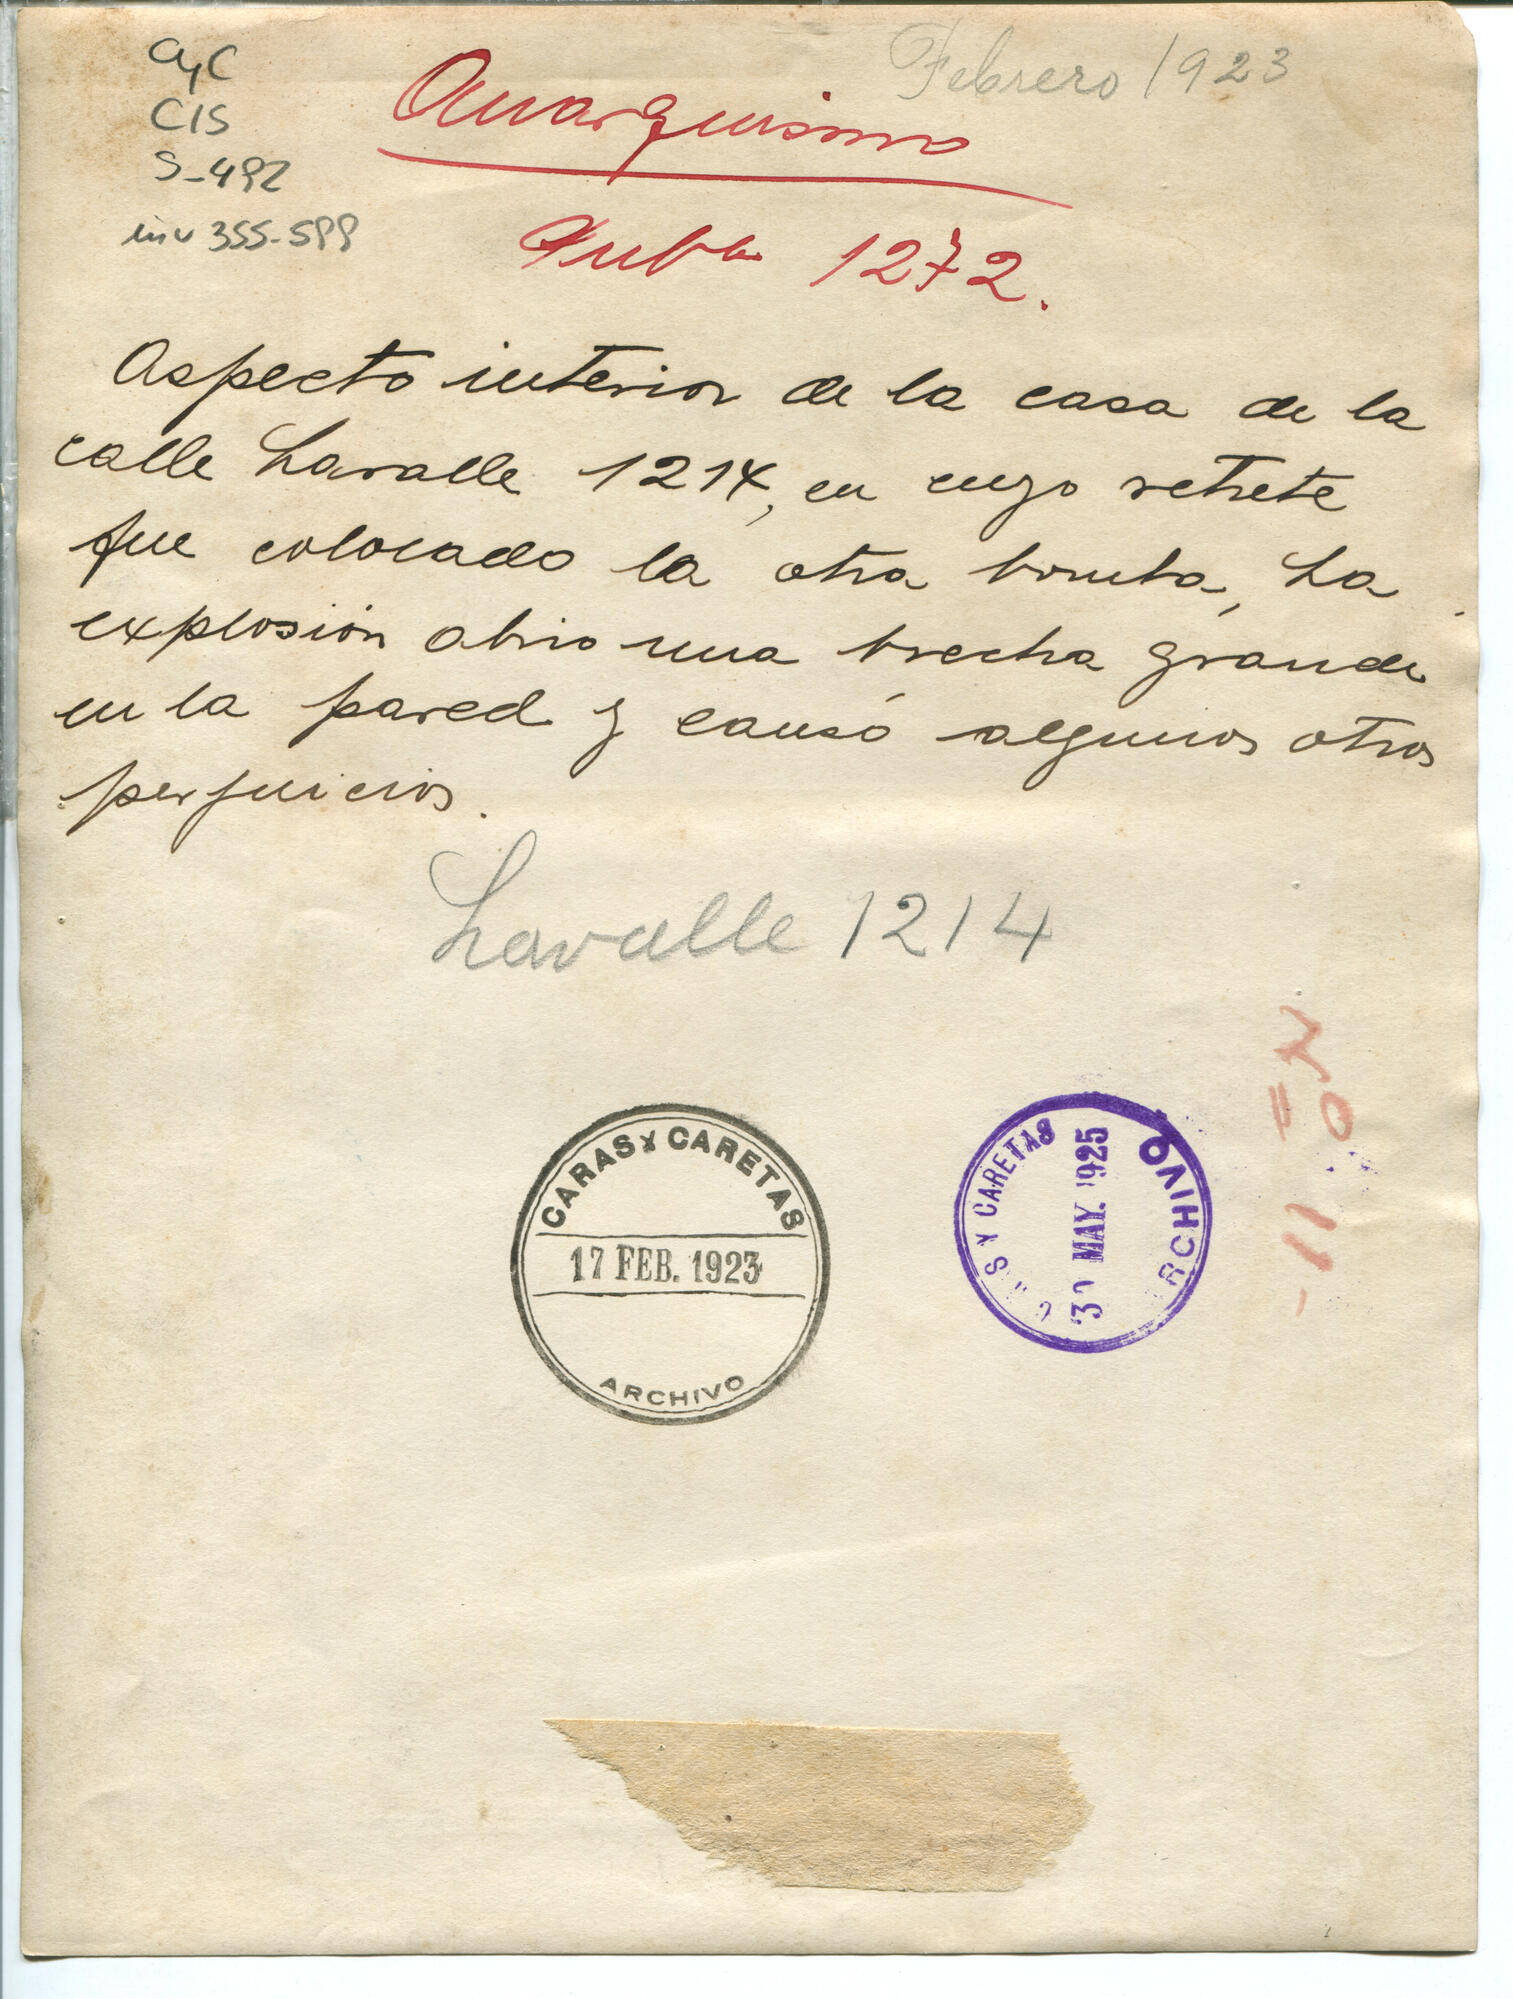 CyC
CIS
S-492
inv 355-599
Febrero 1923
Anarquismo
Pubdo 1272.
Aspecto interior de la casa de la
calle Lavalle 1214, en cuyo retrete
fue colocado la otra bomba, La
explosión abrio una brecha grande
en la pared y causó algunos otros
perjuicios.
Lavalle 1214
CARAS Y CARETAS
17 FEB. 1923
ARCHIVO
CARETAS
MAY. 1925
ARCHIVO